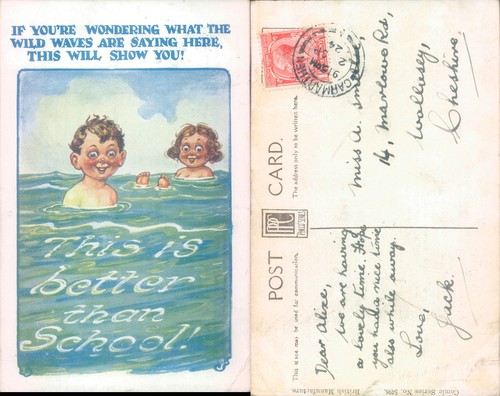 IF YOU'RE WONDERING WHAT THE
WILD WAVES ARE SAYING HERE,
THIS WILL SHOW YOU!
This is
better
than
School!
POST CARD.
This space may be used for communication.
The address only to be written here.
Dear Alice,
We are having
a lovely time. Hope
you had a nice time
also while away.
Love,
Jack.
Miss A.
14, Marlowe Rd,
Wallasey,
Cheshire.
Comic Series No.
British Manufacture.